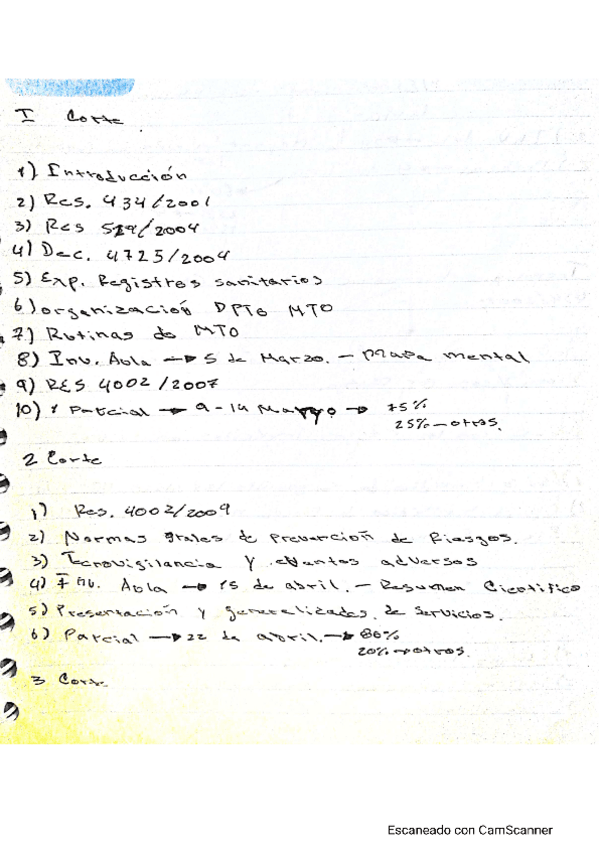 I Corte
1) Introducción
2) Res. 434/2001
3) Res 529/2004
4) Dec. 4725/2004
5) Exp. Registros sanitarios
6) organización DPTO MTO
7) Rutinas de MTO
8) Inv. Aula → 5 de Marzo. - Mapa mental
9) RES 4002/2007
10) 1 Parcial → 9-14 Marzo → 75%
25% - otros.
2 Corte
1) Res. 4002/2009
2) Normas grales de Prevención de Riesgos.
3) Tecnovigilancia y eventos adversos
4) Inv. Aula → 15 de abril. - Resumen Científico
5) Presentación y generalizades de servicios.
6) Parcial → 22 de abril. → 80%
20% → otros.
3 Corte
Escaneado con CamScanner